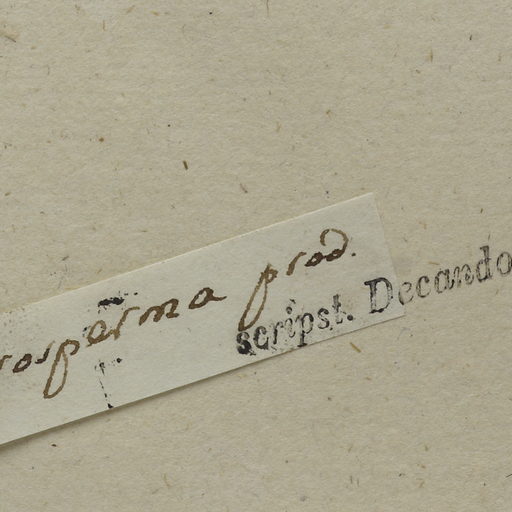 rosperma prod.
scripst. Decando